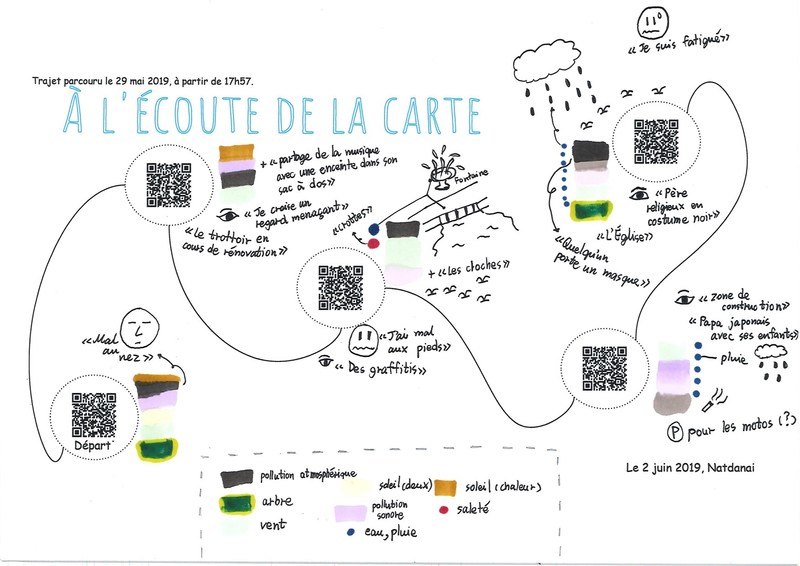 Trajet parcouru le 29 mai 2019, à partir de 17h57.
À L'ÉCOUTE DE LA CARTE
«Je suis fatigué»
+ «partage de la musique
avec une enceinte dans son
sac à dos»
«Je croise un
regard menaçant»
«Le trottoir en
cours de rénovation»
«crottes»
Fontaine
+ «Les cloches»
«Père
religieux en
costume noir»
«L'Église»
«Quelqu'un
porte un masque»
«J'ai mal
aux pieds»
«Des graffitis»
«zone de
construction»
«Papa japonais
avec ses enfants»
pluie
P pour les motos (?)
«Mal
au
nez»
Départ
Le 2 juin 2019, Natdanai
pollution atmosphérique
arbre
vent
soleil (doux)
pollution
sonore
eau, pluie
soleil (chaleur)
saleté